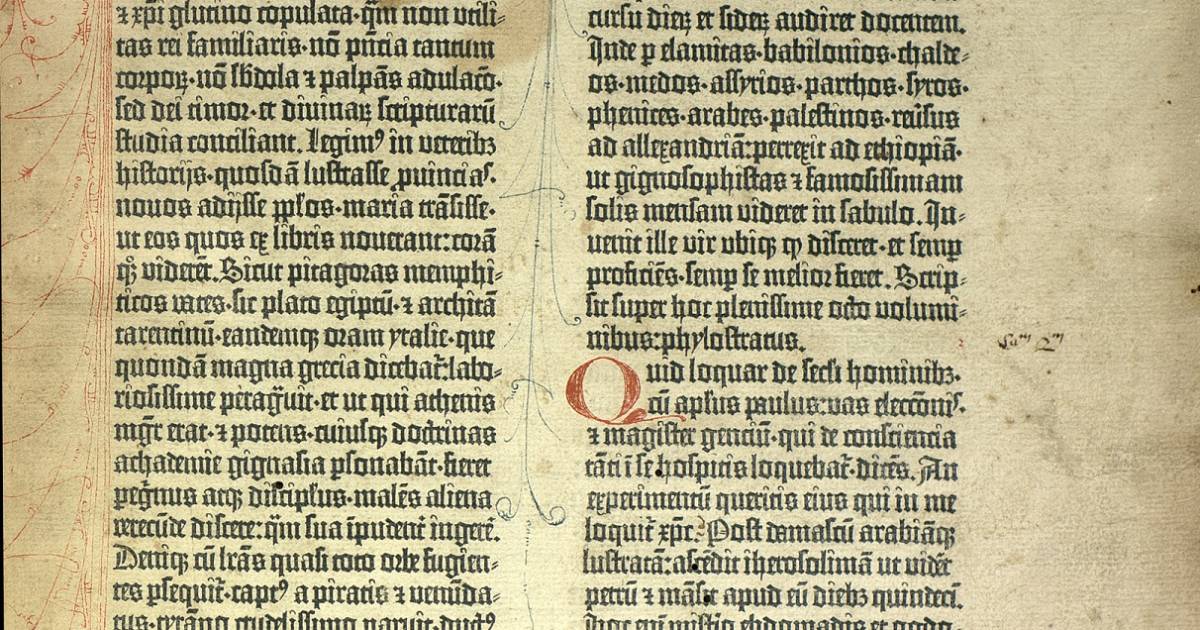 ⁊ xp̄i glutino copulata·q̄m non vtili-
tas rei familiaris·nō pn̄cia tantum
corpoꝝ·nō sb̄dola ⁊ palpās adulacō·
sed dei timor·et diuinaꝝ scripturarū
studia conciliant. Legimꝰ in veteribꝫ
historijs·quosdā lustrasse ꝓuincias·
nouos adijsse pp̄los·maria trāsisse·
ut eos quos ex libris nouerant:corā
qꝫ viderēt. Sicut pitagoras memphi-
ticos vates·sic plato egiptū·⁊ architā
tarentinū·eandemqꝫ oram ytalie·que
quondā magna grecia dicebat᷑:labo-
riosissime ꝑagͣuit·et ut qui athenis
mgr̄ erat·⁊ potens·cuiusqꝫ doctrinas
achademie gignasia ꝑsonabāt·fieret
ꝑegͥnus atqꝫ discipl̄us·malēs aliena
verecūde discere:q̄m sua īpudent᷑ ingerē.
Deniqꝫ cū lr̄as quasi toto orbe fugien-
tes ꝑsequit᷑·captꝰ a piratis ⁊ venūda-
tus·tyrāno crudelissimo paruit·ductꝰ
cursū dieꝝ et sideꝝ audiret docentem.
Inde ꝑ elamitas·babilonios·chalde-
os·medos·assyrios·parthos·syros·
phenices·arabes·palestinos·reūsus
ad allexandriā:perrexit ad ethiopiā·
ut gignosophistas ⁊ famosissimam
solis mensam videret in sabulo. In-
uenit ille vir vbiqꝫ qꝙ disceret·et semꝑ
proficiēs·semꝑ se melior fieret. Scrip-
sit super hoc plenissime octo volumi-
nibus:phylostratus.
Quid loquar de secl̄i hominibꝫ·
cū apl̄us paulus:vas electōnis·
⁊ magister genciū·qui de consciencia
tāti ī se hospitis loquebat᷑·dicēs. An
experimentū queritis eius qui in me
loquit᷑ xpc̄. Post damascū arabiāqꝫ
lustratā:ascēdit iherosolimā ut videt᷑
petrū ⁊ māsit apud eū diebꝫ quindeci.
Hoc em̄ misterio ebdomadis et ogdo-